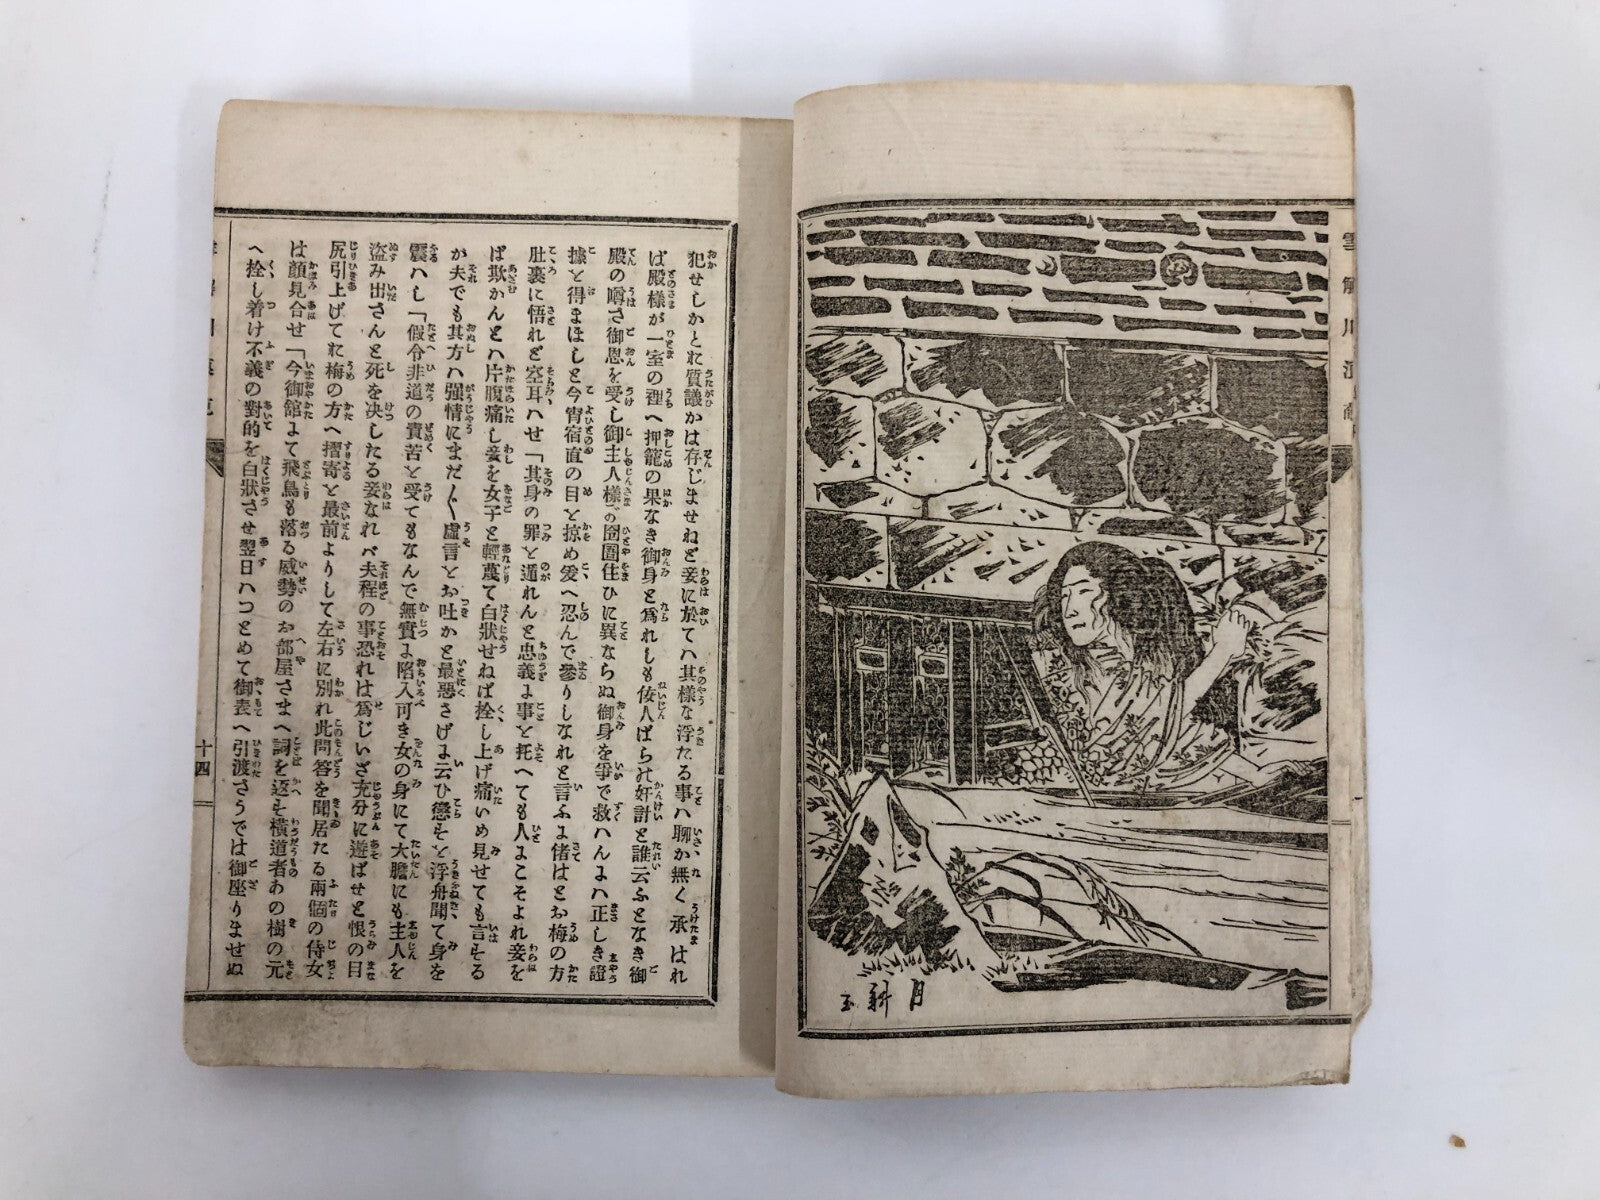 雪解川
月
新
玉
犯せしかとれ質議かは存じませねど妾に於てハ其樣な浮たる事ハ聊か無く承はれ
ば殿樣が一室の裡へ押籠の果なき御身と爲れしも佞人ばらの奸計と誰云ふとなき御
殿の噂さ御恩を受し御主人樣の囹圄住ひに異ならぬ御身を爭で救ハんよハ正しき證
據と得まほしと今宵宿直の目と掠め爰へ忍んで參りしなれと言ふよ偖はとお梅の方
肚裏に悟れど空耳ハせ「其身の罪と遁れんと忠義よ事と托へても人よこそよれ妾を
ば欺かんとハ片腹痛し妾を女子と輕蔑て白狀せねば拴し上げ痛いめ見せても言そる
が夫でも其方ハ强情にまだ〳〵虛言とお吐かと最惡さげよ云ひ懲そと浮舟聞て身を
震ハし「假令非道の責苦と受てもなんで無實よ陷入可き女の身にて大膽にも主人を
盜み出さんと死を决したる妾なれバ夫程の事恐れは爲じいざ充分に遊ばせと恨の目
尻引上げてれ梅の方へ摺寄と最前よりして左右に別れ此問答を聞居たる兩個の侍女
は顏見合せ「今御舘よて飛鳥も落る威勢のお部屋さまへ詞を返そ橫道者あの樹の元
へ拴し着け不義の對的を白狀させ翌日ハつとめて御表へ引渡さうでは御座りませぬ
十四